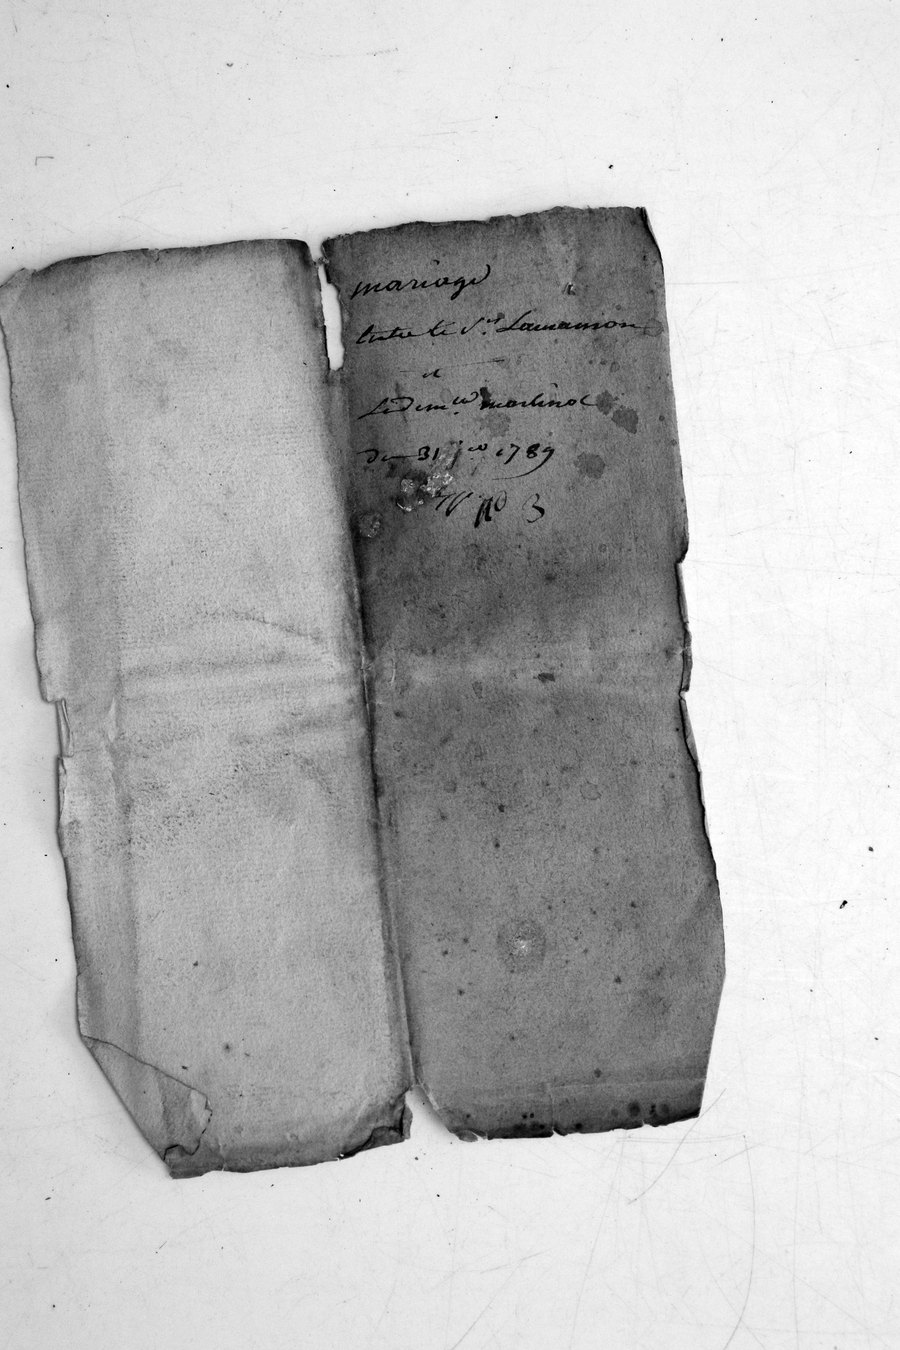 mariage
Entre le S.r Lamamon
et
La dem.lle martinot
du 31 j.er 1789
N.o 3